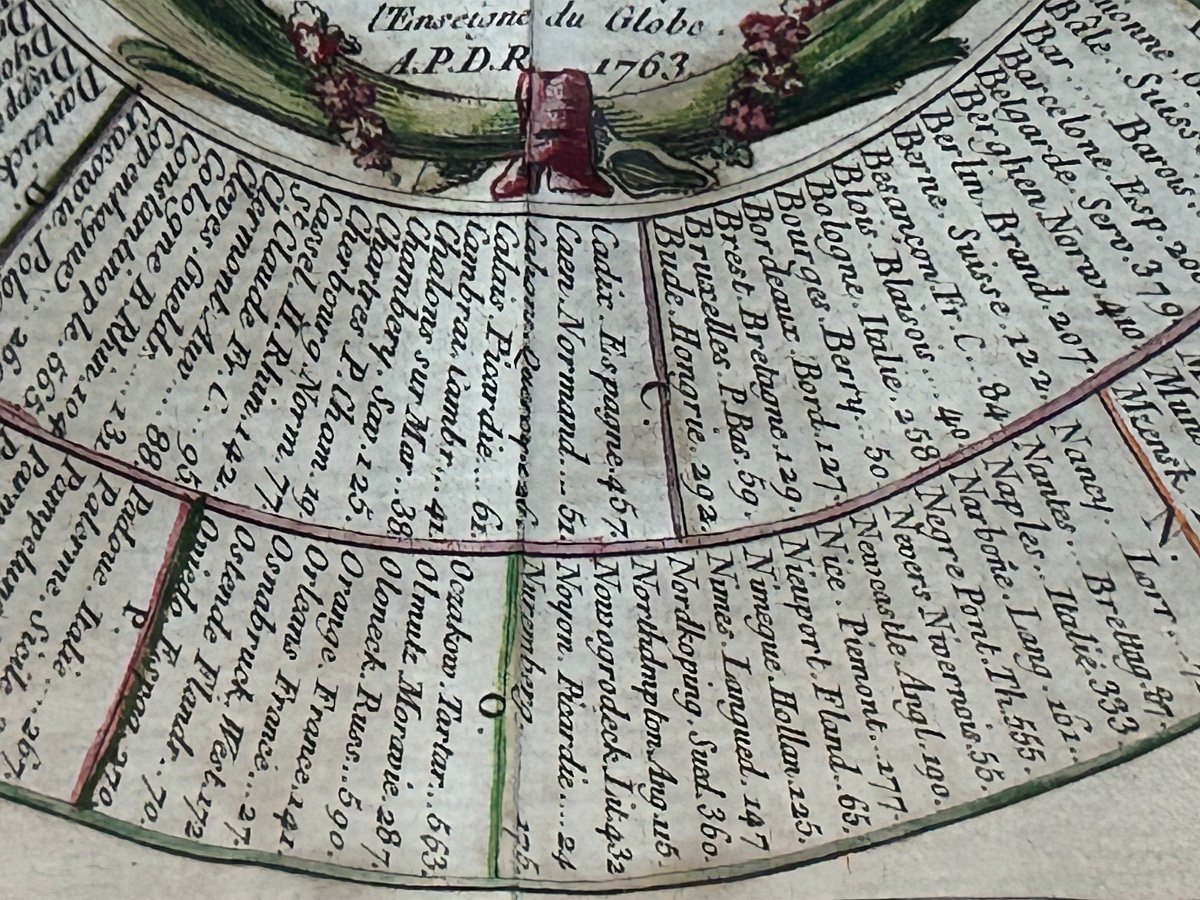 l'Enseigne du Globe.
A.P.D.R. 1763
Bâle.. Suisse
Bar..... Barois
Barcelone. Esp. 20
Belgarde. Serv. 379
Berghen. Norw. 410
Berlin. Brand. 207.
Berne. Suisse. 122.
Besançon. Fr. C... 84.
Blois. Blaisois... 40
Bologne. Italie. 258
Bourges. Berry... 50.
Bordeaux. Bord. 127.
Brest. Bretagne. 129.
Bruxelles. P.Bas. 59.
Bude. Hongrie. 292.
C.
Cadix. Espagne. 457.
Caen. Normand.... 51.
Calais. Picardie... 61.
Cambrai. Cambr... 41
Chalons sur Mar.. 38
Chambery. Sav. 125.
Chartres P Cham. 19.
Cherbourg. Norm. 77.
Cassel. H. Rhin. 142.
St. Claude. Fr. C... 95
Clermont. Auv.... 88.
Cleves. Gueld.... 131
Cologne B. Rhin. 104
Constantinople. 565.
Copenhague... 266
Cracovie. Polo
D.
Dantzick.
Diepp
Meensk.
N.
Nancy.. Lorr...
Nantes... Brettag. 87.
Naples.. Italie. 333
Narbone. Lang. 161..
Negre Pont. Th. 555.
Nevers Nivernois. 55.
Neucastle. Angl. 190.
Nice. Piemont.. 177.
Nieuport. Fland.. 65.
Nimegue. Hollan. 125.
Nimes. Langued. 147
Nordkoping. Sued. 360.
Northampton. Ang. 115.
Nowogrodeck. Lit. 432
Noyon. Picardie.... 24
Nuremberg. 175.
O.
Oczakow. Tartar... 563.
Olmutz. Moravie. 287.
Oloneck. Russ.... 590.
Orange. France. 141.
Orleans. France... 27.
Osnabruck. West. 172.
Ostende. Flandr.. 70.
Oviedo. Espag. 270.
P.
Padoue. Italie... 267.
Palerme. Sicile
Pampelune